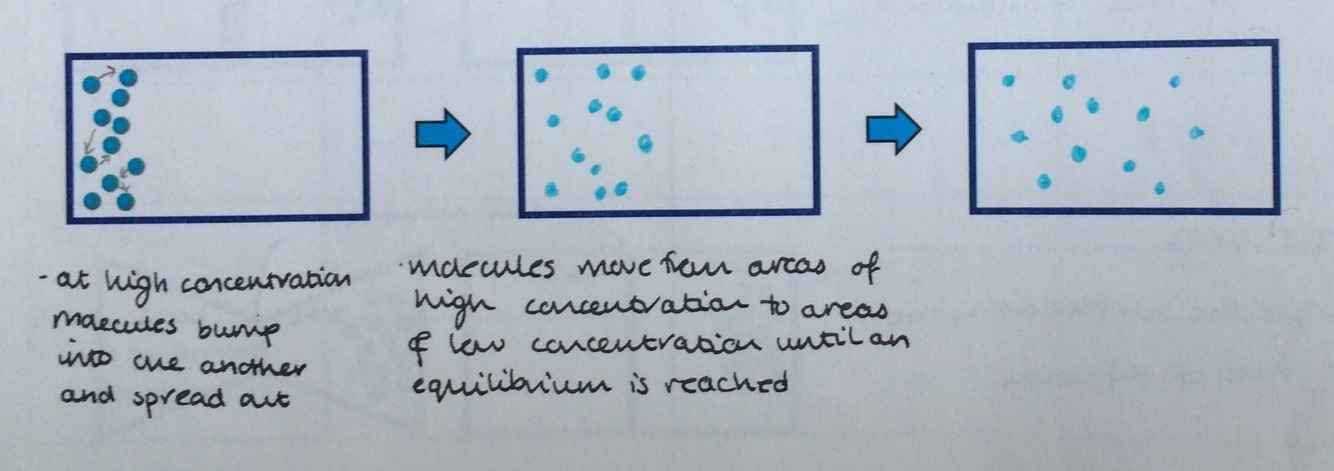 - at high concentration
molecules bump
into one another
and spread out
· molecules move from areas of
high concentration to areas
of low concentration until an
equilibrium is reached